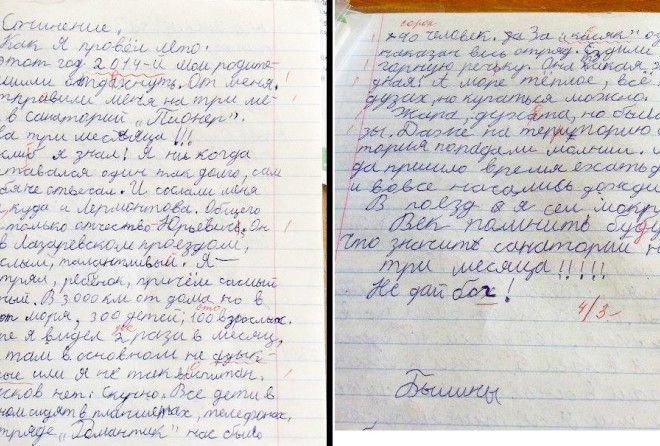 Сочинение.
Как я провёл лето.
этот год 2014-й мои родите-
шили отдохнуть. От меня.
тправили меня на три ме-
в санаторий "Пионер".
ва три месяца!!!
я знал! Я ни когда
ставался один так долго, сам
бя не отвечал. И сослали меня
куда и Лермонтова. Общего
только отчество Юрьевич. Он
в Лазаревском проездом,
слый, талантливый. Я —
ребёнок, причём самый
ный. В 3000 км от дома но в
от моря, 300 детей, 100 взрослых.
сто
ре я видел 2 раза в месяц,
там в основном не
или я не так воспитан.
нет. Скучно. Все дети в
ном сидят в планшетах, телефонах,
тряде "Романтик" нас было
сорок
40 человек. Да за "касяк" од
наказан весь отряд. Ездили
горную речьку. Она
дная! А море тёплое всё
дузах, но купаться можно.
Жара, духота, но были
зы. Даже на территорию
тория попадали молнии. И
да пришло время ехать д
и вовсе начались дожди
В поезд я сел мокр
Век помнить буду
что значить санаторий н
три месяца!!!!!
Не дай бох!
4/3-
Былины